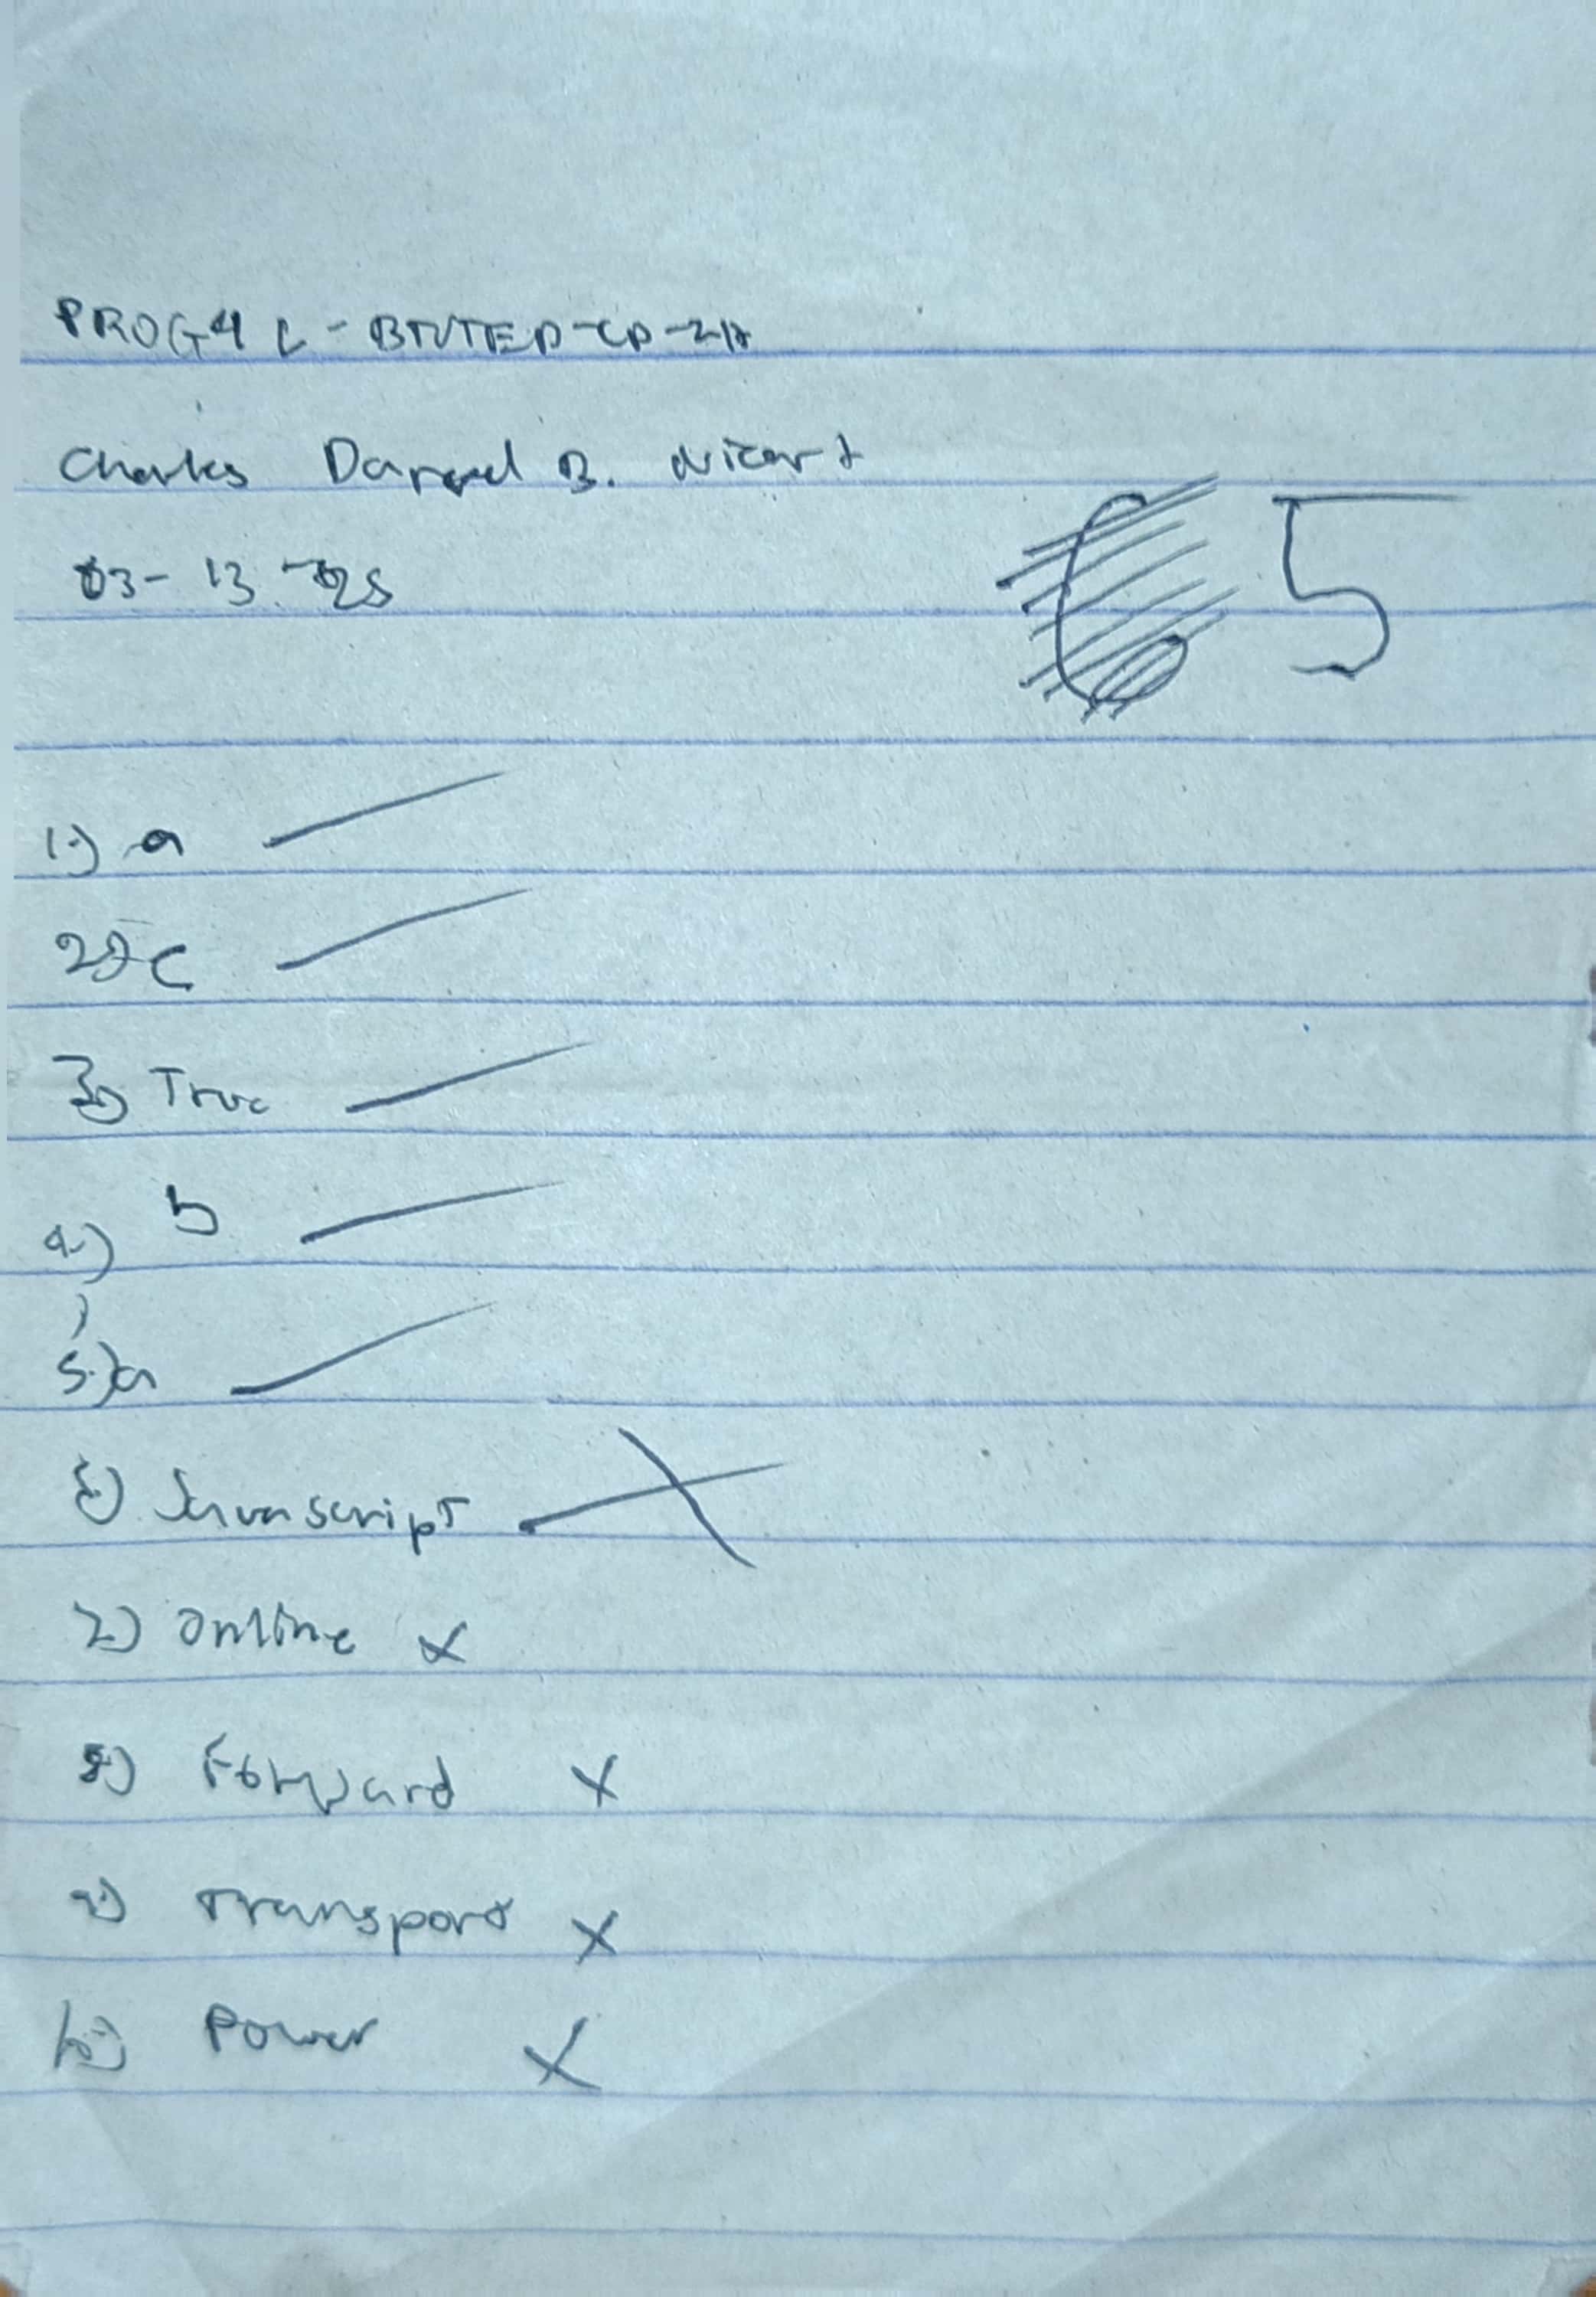 PROG4 L - BTVTED-CP-2A
Charles Darryl B. Nicart
03-13-25
5
1.) a
2.) c
3.) True
4.) b
5.) a
1.) Javascript
2.) Online
3.) Forward
4.) Transport
5.) Power